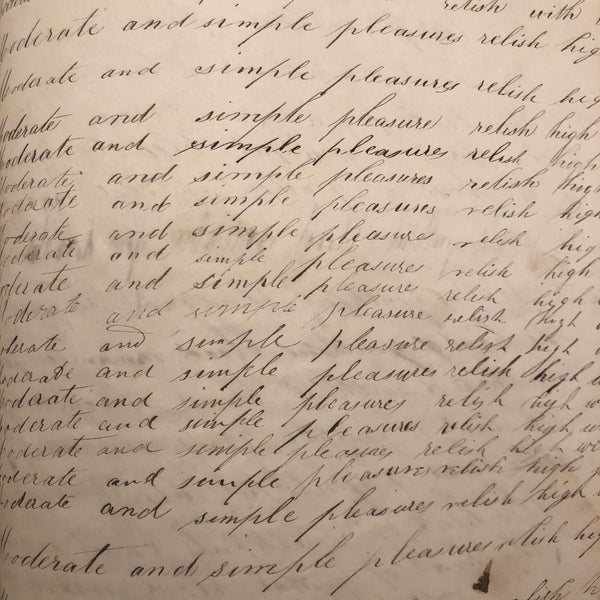 relish with
Moderate and simple pleasures relish hig
Moderate and simple pleasures relish hig
Moderate and simple pleasure relish high
Moderate and simple pleasures relish high
Moderate and simple pleasures relish high
Moderate and simple pleasures relish high
Moderate and simple pleasure relish hig
oderate and simple pleasures relish high
oderate and simple pleasures relish high
oderate and simple pleasure relish high
oderate and simple pleasure relish high
oderate and simple pleasures relish high w
oderate and simple pleasures relish high w
oderate and simple pleasures relish high w
oderate and simple pleasures relish high wi
oderate and simple pleasures relish high
oderate and simple pleasures relish high
Moderate and simple pleasures relish hig
relish h